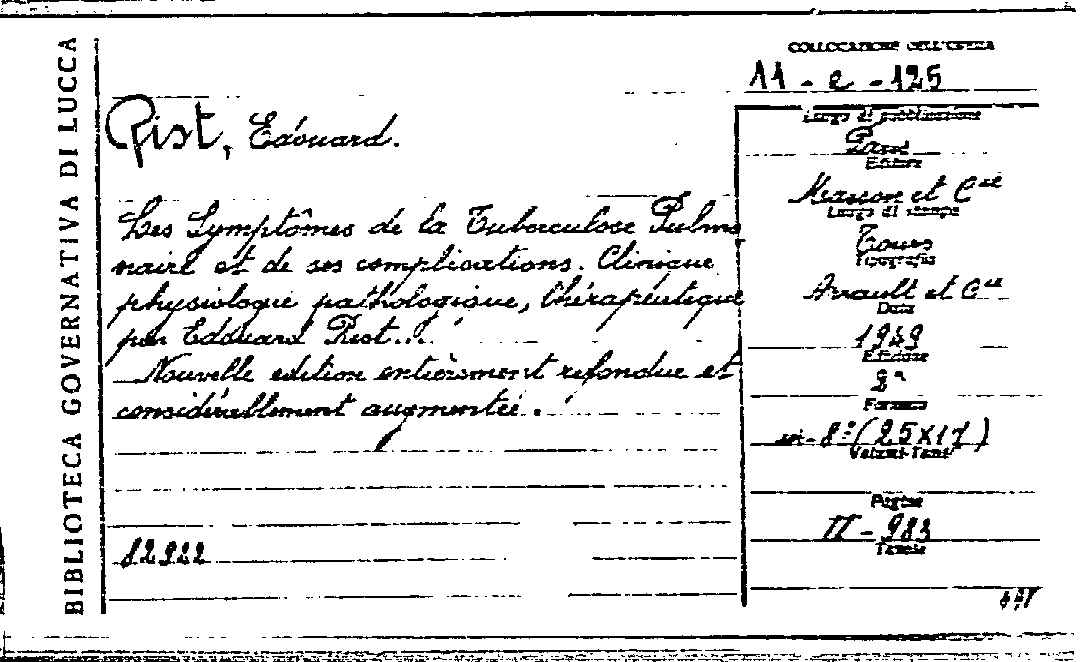 BIBLIOTECA GOVERNATIVA DI LUCCA
COLLOCAZIONE DELL'OPERA
11 - e - 125
Rist, Edouard.
Les Symptômes de la Tuberculose Pulmo
naire et de ses complications. Clinique
physiologie pathologique, thérapeutique
par Edouard Rist...
Nouvelle edition entièrement refondue et
considérablement augmentée.
82922
Luogo di pubblicazione
Paris
Editore
Masson et Cie
Luogo di stampa
Tours
Tipografia
Arrault et Cie
Data
1949
Edizione
2ª
Formato
in-8º (25x17)
Volumi-Tomi
Pagine
II - 983
Tavole